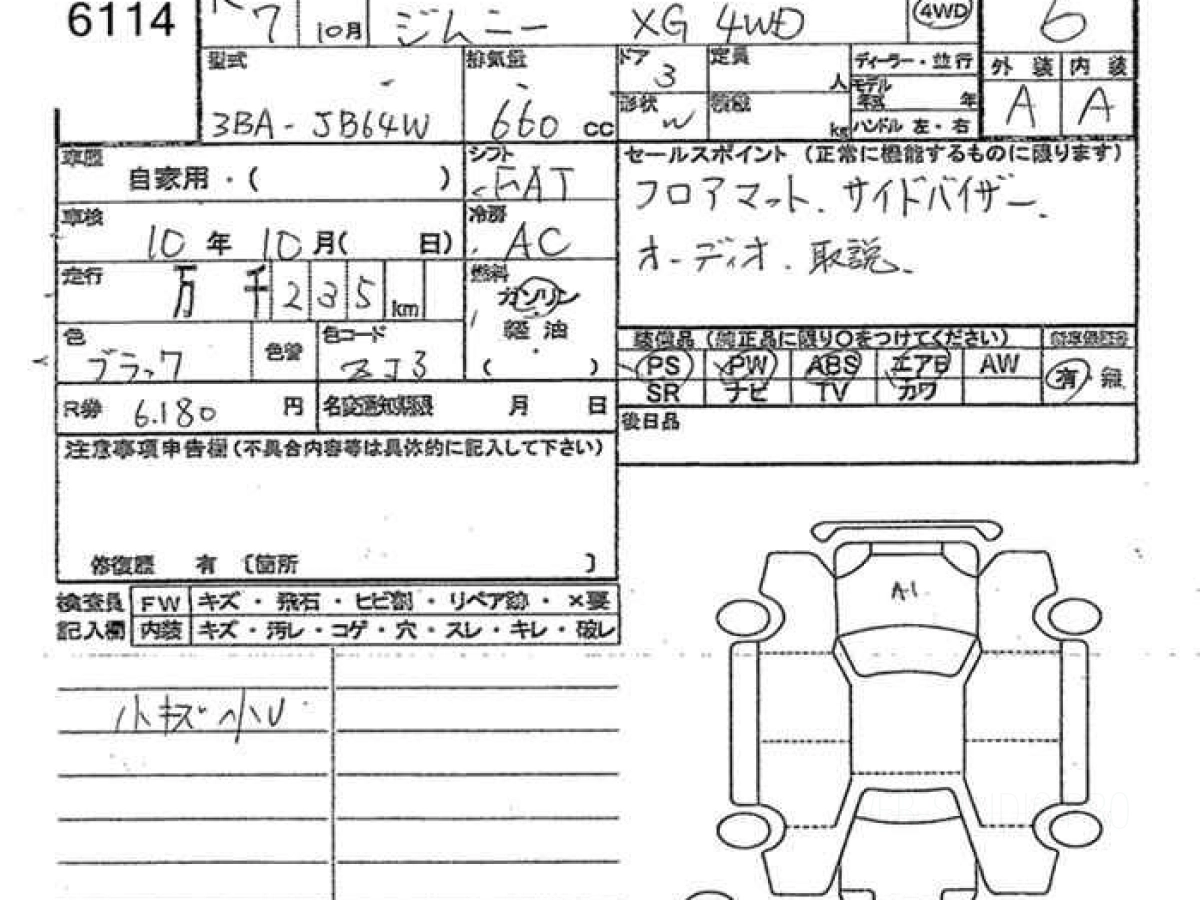 6114
7 10月 ジムニー XG 4WD 4WD 6
型式 排気量 ドア 3 定員 人 ディーラー・並行 外装 内装
3BA-JB64W 660 cc 形状 W 積載 kg モデル年式 年 ハンドル 左・右 A A
車歴 自家用・( ) シフト FAT
セールスポイント (正常に機能するものに限ります)
フロアマット、サイドバイザー、
オーディオ、取説、
車検 10年 10月( 日) 冷房 AC
走行 万 千 2 3 5 km 燃料 ガソリン
軽油
( )
色 ブラック 色替 色コード ZJ3
装備品 (純正品に限り○をつけてください)
PS PW ABS エアB AW 有・無
SR ナビ TV カワ
R券 6.180 円 名変通知期限 月 日
後日品
注意事項申告欄(不具合内容等は具体的に記入して下さい)
修復歴 有 〔箇所 〕
検査員 FW キズ・飛石・ヒビ割・リペア跡・×要
記入欄 内装 キズ・汚レ・コゲ・穴・スレ・キレ・破レ
小キズ 小U
A1